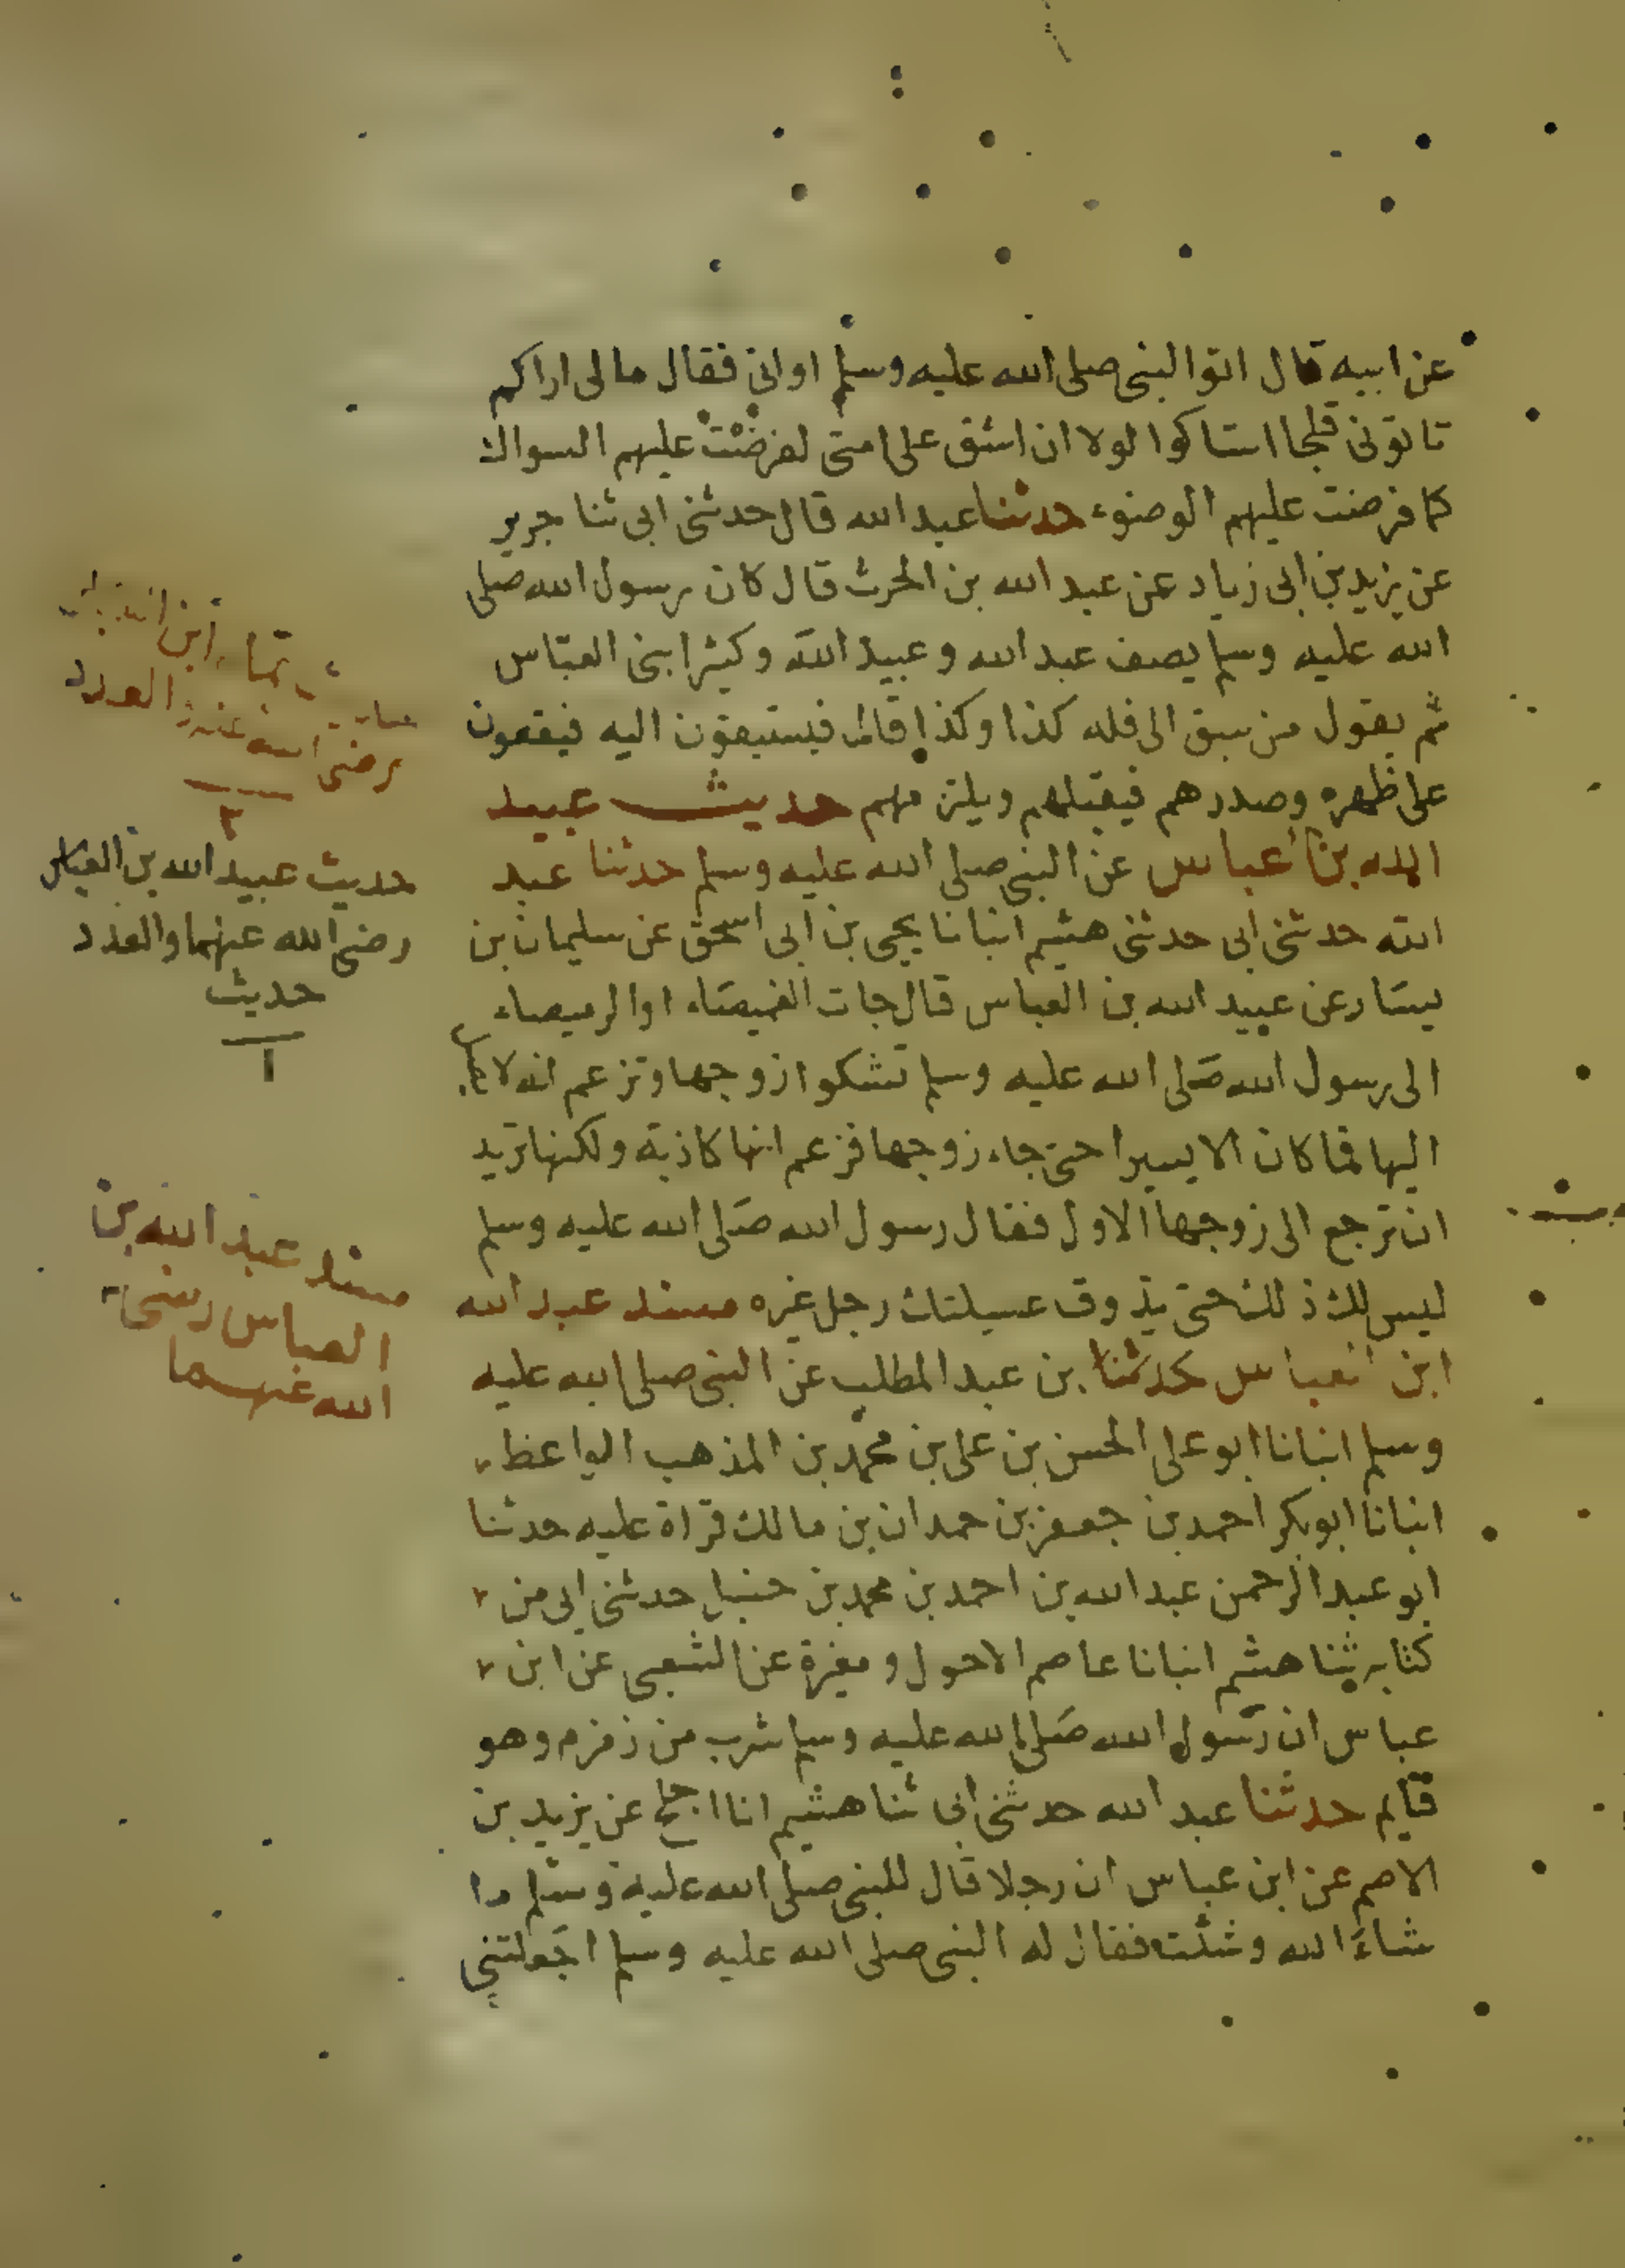 عن ابيه قال اتوا النبى صلى الله عليه وسلم او اتى فقال مالى اراكم
تاتونى قلحا استاكوا لولا ان اشق على امتى لفرضت عليهم السواك
كما فرضت عليهم الوضوء حدثنا عبد الله قال حدثنى ابى ثنا جرير
عن يزيد بن ابى زياد عن عبد الله بن الحرث قال كان رسول الله صلى
الله عليه وسلم يصف عبد الله و عبيد الله وكثيرا بنى العباس
ثم يقول من سبق الى فله كذا وكذا قال فيستبقون اليه فيقعون
على ظهره وصدرهم فيقبلهم ويلتزمهم حديث عبيد
الله بن عباس عن النبى صلى الله عليه وسلم حدثنا عبد
الله حدثنى ابى حدثنى هشيم انبانا يحيى بن ابى اسحق عن سليمان بن
يسار عن عبيد الله بن العباس قال جات الغميصاء او الرميصاء
الى رسول الله صلى الله عليه وسلم تشكوا زوجها وتزعم انه لا يصل
اليها فما كان الا يسيرا حتى جاء زوجها فزعم انها كاذبة ولكنها تريد
ان ترجع الى زوجها الاول فقال رسول الله صلى الله عليه وسلم
ليس لك ذلك حتى يذوق عسيلتك رجل غيره مسند عبد الله
ابن العباس حدثنا بن عبد المطلب عن النبى صلى الله عليه
وسلم انبانا ابو على الحسن بن على بن محمد بن المذهب الواعظ
انبانا ابو بكر احمد بن جعفر بن حمدان بن مالك قراة عليه حدثنا
ابو عبد الرحمن عبد الله بن احمد بن محمد بن حنبل حدثنى ابى من
كتابه ثنا هشيم انبانا عاصم الاحول ومغيرة عن الشعبى عن ابن
عباس ان رسول الله صلى الله عليه وسلم شرب من زمزم وهو
قايم حدثنا عبد الله حدثنى ابى ثنا هشيم انا اجلح عن يزيد بن
الاصم عن ابن عباس ان رجلا قال للنبى صلى الله عليه وسلم ما
شاء الله وشئت فقال له النبى صلى الله عليه وسلم اجعلتنى
تمام ابن
رضى الله عنه والعدد
٢
حديث عبيد الله بن العباس
رضى الله عنهما والعدد
حديث
١
مسند عبد الله بن
العباس رضى
الله عنهما